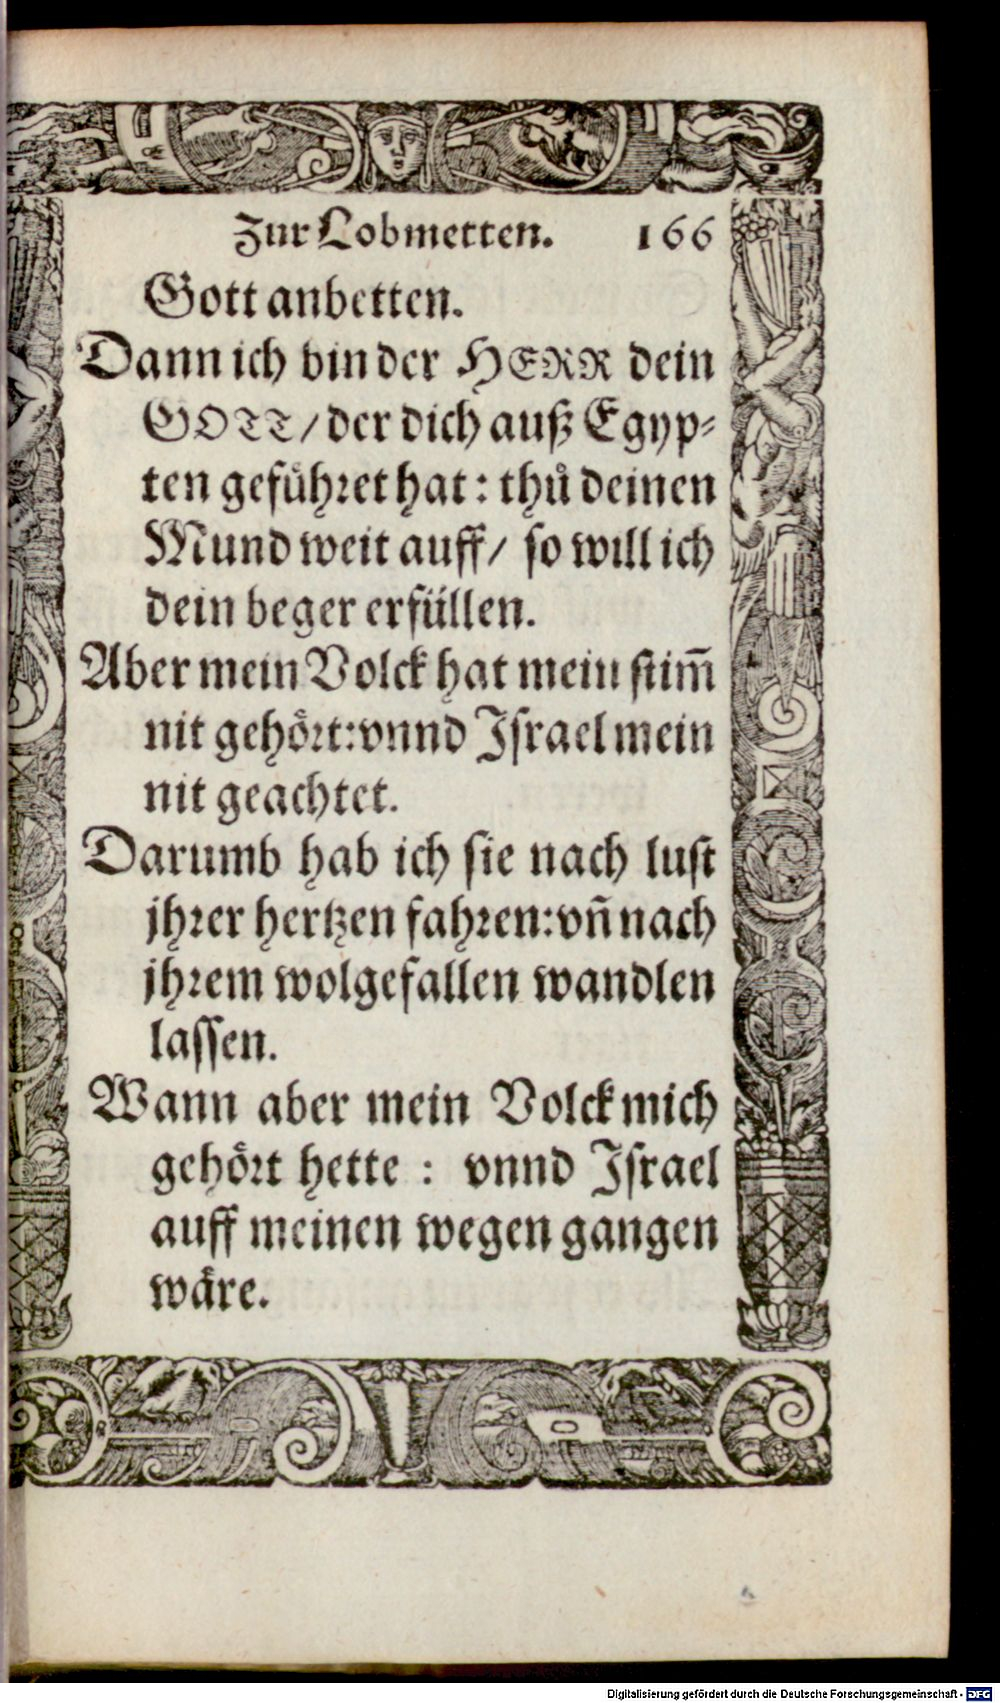 Zur Lobmetten. 166
Gott anbetten.
Dann ich bin der HERR dein
GOTT / der dich auß Egyp⸗
ten geführet hat : thuͦ deinen
Mund weit auff / so will ich
dein beger erfüllen.
Aber mein Volck hat mein stim̃
nit gehört: vnnd Israel mein
nit geachtet.
Darumb hab ich sie nach lust
jhrer hertzen fahren: vñ nach
jhrem wolgefallen wandlen
lassen.
Wann aber mein Volck mich
gehört hette : vnnd Israel
auff meinen wegen gangen
wäre.
Digitalisierung gefördert durch die Deutsche Forschungsgemeinschaft - DFG